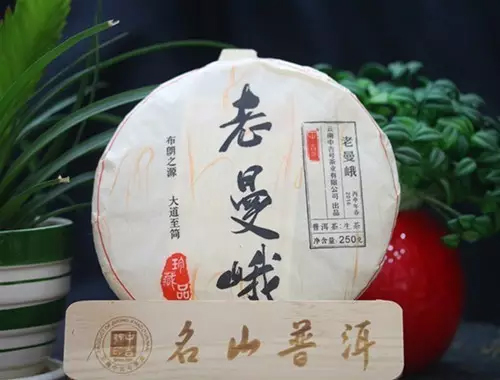 老曼峨
布朗之源
大道至简
珍藏品
中吉号
老曼峨
丙申年春
2016
云南中吉号茶业有限公司 出品
普洱茶:生茶
净含量:250克
名山普洱